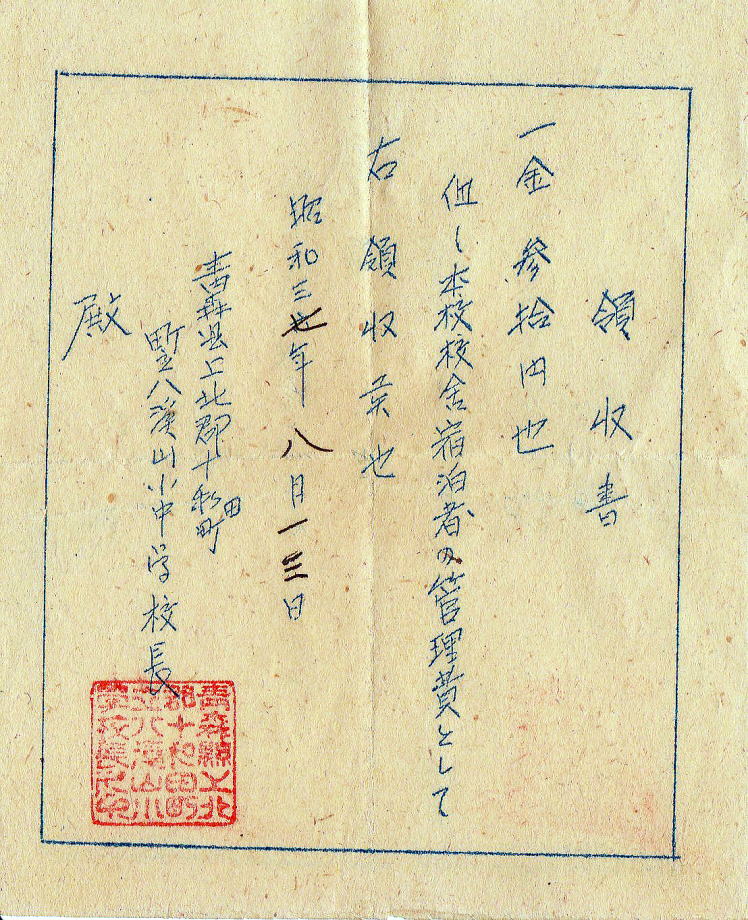 領収書
一金参拾円也
但し本校校舎宿泊者の管理費として
右領収 也
昭和三七年八月一三日
青森県上北郡十和田町
町立八溪山小中学校長
殿
青森縣上北
郡十和田町
立八溪山小
学校長之印